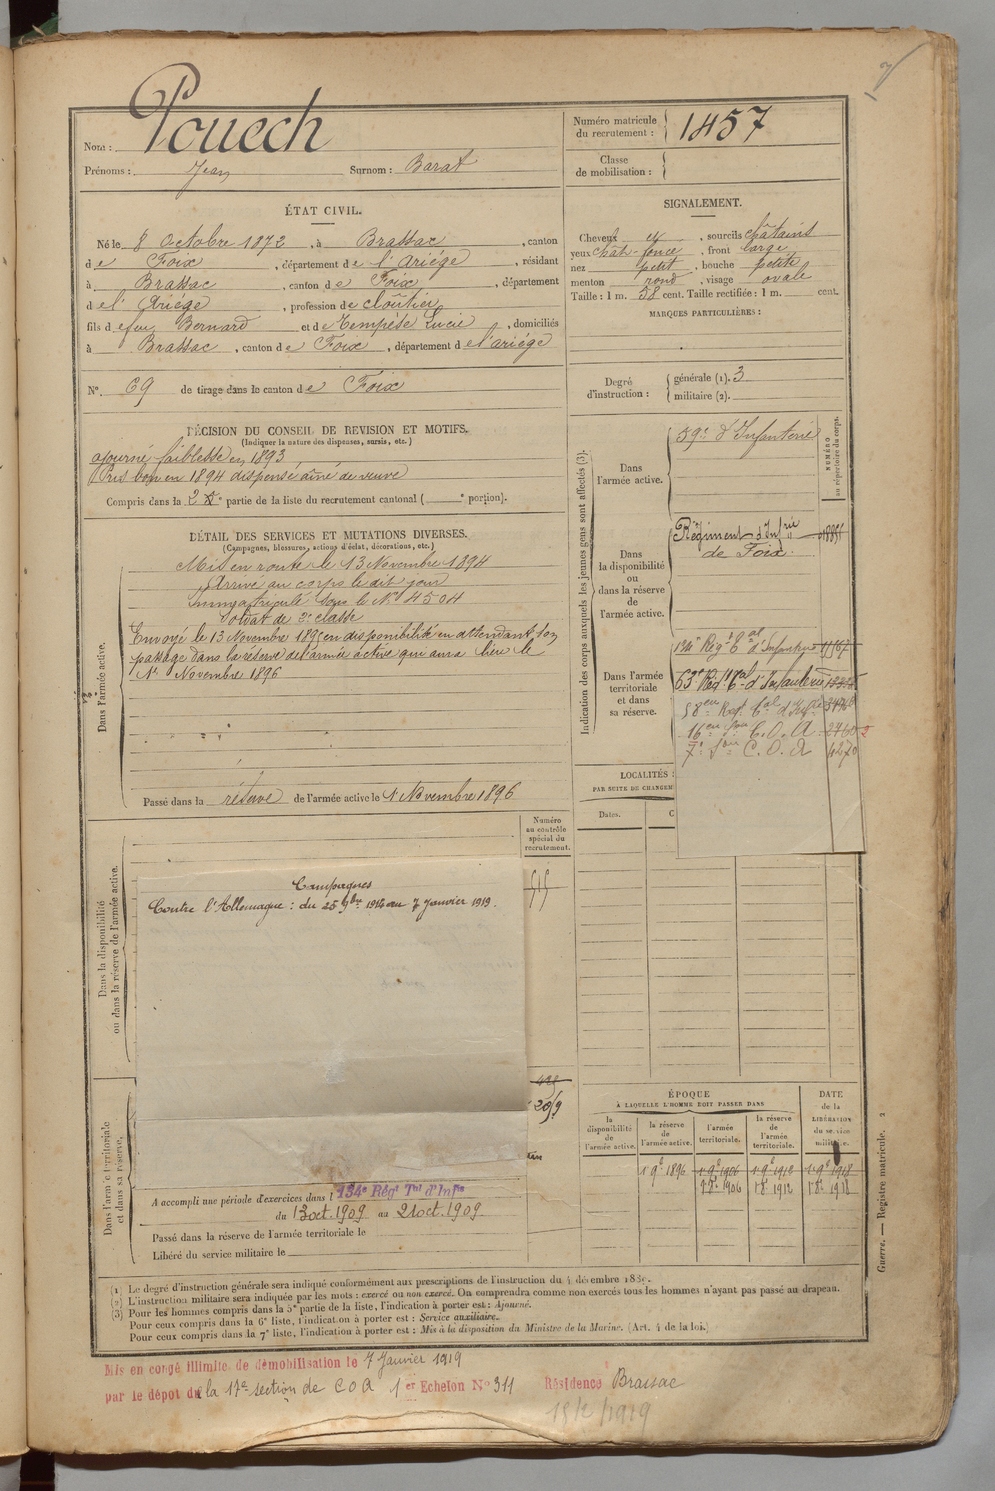 Nom : Pouech
Prénoms : Jean Surnom : Barat
Numéro matricule du recrutement : 1457
Classe de mobilisation :
ÉTAT CIVIL.
Né le 8 Octobre 1872, à Brassac, canton
de Foix, département de l'Ariége, résidant
à Brassac, canton de Foix, département
de l'Ariége, profession de cloûtier
fils de feu Bernard et de Tempése Lucie, domiciliés
à Brassac, canton de Foix, département de l'ariége
N° 69 de tirage dans le canton de Foix
SIGNALEMENT.
Cheveux et, sourcils châtains
yeux chât-foncé, front large
nez petit, bouche petite
menton rond, visage ovale
Taille : 1 m. 58 cent. Taille rectifiée : 1 m. cent.
MARQUES PARTICULIÈRES :
Degré d'instruction : générale (1). 3
militaire (2).
DÉCISION DU CONSEIL DE REVISION ET MOTIFS.
(Indiquer la nature des dispenses, sursis, etc.)
ajourné faiblesse en 1893
Pris bon en 1894 dispensé aîné de veuve
Compris dans la 2e partie de la liste du recrutement cantonal ( e portion).
DÉTAIL DES SERVICES ET MUTATIONS DIVERSES.
(Campagnes, blessures, actions d'éclat, décorations, etc.)
Dans l'armée active.
Mis en route le 13 Novembre 1894
Arrivé au corps le dit jour
Immatriculé sous le No 4504
Soldat de 2e classe
Envoyé le 13 Novembre 1895 en disponibilité en attendant son
passage dans la réserve de l'armée active qui aura lieu le
1r Novembre 1896
Passé dans la réserve de l'armée active le 1r Novembre 1896
Indication des corps auxquels les jeunes gens sont affectés (3).
NUMÉRO au répertoire du corps.
Dans l'armée active.
59e d'Infanterie
Dans la disponibilité ou dans la réserve de l'armée active.
Régiment d'Infrie
de Foix.
Dans l'armée territoriale et dans sa réserve.
134e Régt Tal d'Infanterie
63e Régt Tal d'Infanterie
58eme Regt Tal d'Infrie
16eme Son C.O.A. 2760
7e Son C.O.A 4270
LOCALITÉS
PAR SUITE DE CHANGEM
Dates.
Numéro au contrôle spécial du recrutement.
515
Dans la disponibilité ou dans la réserve de l'armée active.
Campagnes
Contre l'Allemagne : du 25 9bre 1914 au 7 Janvier 1919.
Dans l'armée territoriale et dans sa réserve.
A accompli une période d'exercices dans l 134e Régt Tal d'Infie
du 13 oct. 1909 au 21 oct. 1909
Passé dans la réserve de l'armée territoriale le
Libéré du service militaire le
ÉPOQUE
À LAQUELLE L'HOMME DOIT PASSER DANS
DATE de la LIBÉRATION du service militaire.
la disponibilité de l'armée active.
la réserve de l'armée active.
l'armée territoriale.
la réserve de l'armée territoriale.
1r 9e 1896 1r 9e 1906 1r 9e 1912 1r 9e 1918
1r 8e 1906 1r 8e 1912 1r 8e 1918
Guerre. — Registre matricule. 2
(1) Le degré d'instruction générale sera indiqué conformément aux prescriptions de l'instruction du 4 décembre 1889.
(2) L'instruction militaire sera indiquée par les mots : exercé ou non exercé. On comprendra comme non exercés tous les hommes n'ayant pas passé au drapeau.
(3) Pour les hommes compris dans la 5e partie de la liste, l'indication à porter est : Ajourné.
Pour ceux compris dans la 6e liste, l'indication à porter est : Service auxiliaire.
Pour ceux compris dans la 7e liste, l'indication à porter est : Mis à la disposition du Ministre de la Marine. (Art. 4 de la loi.)
Mis en congé illimité de démobilisation le 7 Janvier 1919
par le dépôt de la 17e section de COA 1er Echelon N° 311 Résidence Brassac
15/2/1919